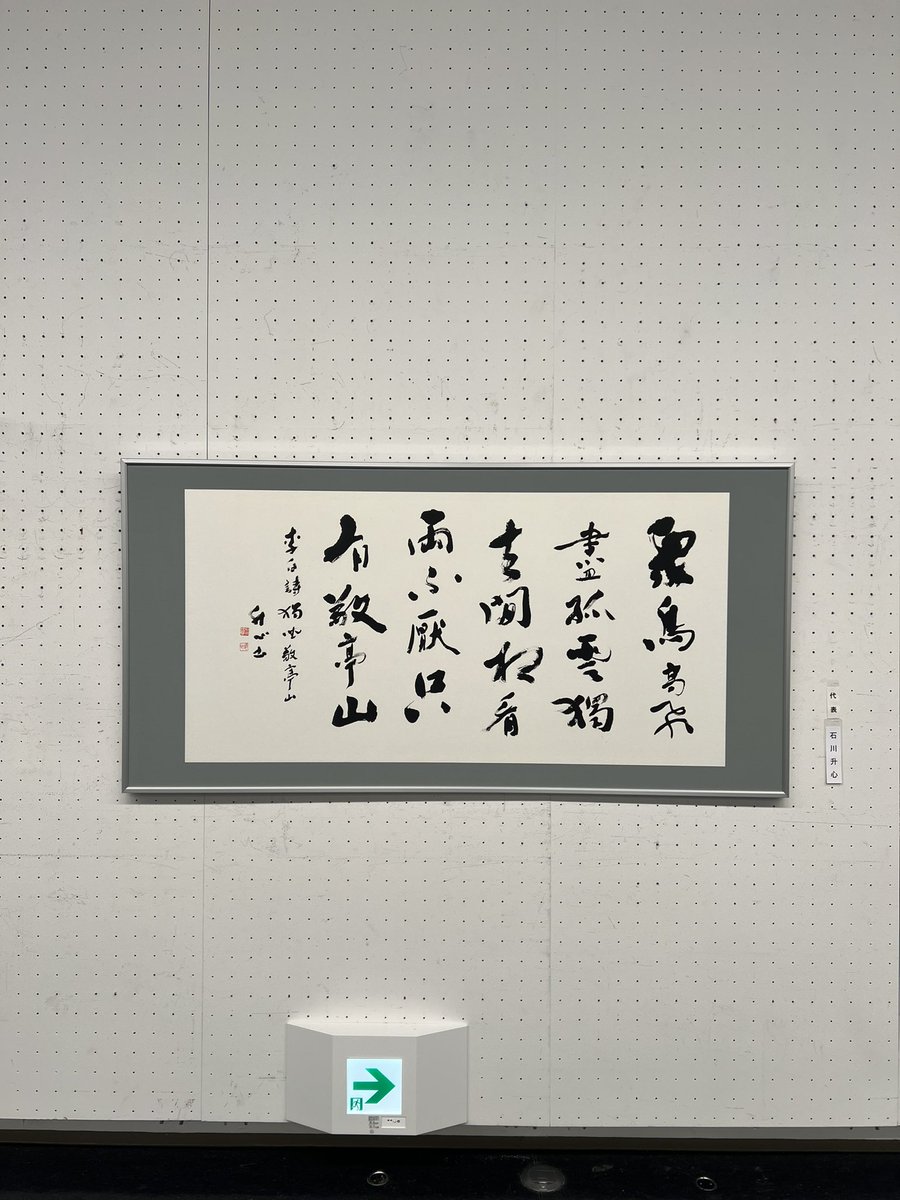 眾鳥高飛
盡孤雲獨
去閒相看
兩不厭只
有敬亭山
李白詩獨坐敬亭山
升心書
代表
石川升心